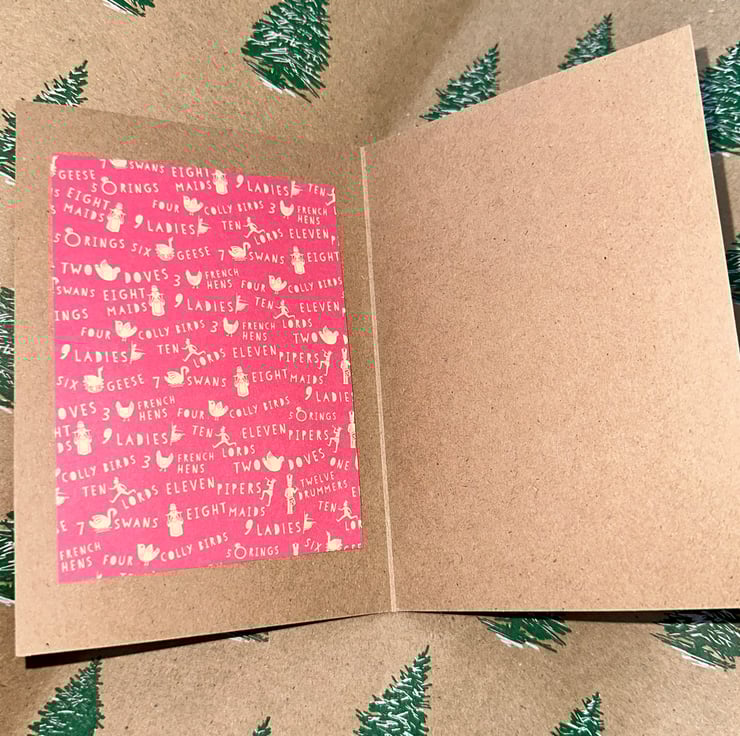 GEESE 7 SWANS EIGHT
5 RINGS MAIDS 9 LADIES TEN
EIGHT MAIDS FOUR COLLY BIRDS 3 FRENCH HENS
9 LADIES TEN LORDS ELEVEN
5 RINGS SIX GEESE 7 SWANS EIGHT
TWO DOVES 3 FRENCH HENS FOUR COLLY BIRDS
SWANS EIGHT MAIDS 9 LADIES TEN ELEVEN
INGS
FOUR COLLY BIRDS 3 FRENCH HENS LORDS TWO
9 LADIES TEN LORDS ELEVEN PIPERS
SIX GEESE 7 SWANS EIGHT MAIDS
OVES 3 FRENCH HENS FOUR COLLY BIRDS 9 LADIES
5 RINGS
HT DS 9 LADIES TEN LORDS ELEVEN PIPERS
COLLY BIRDS 3 FRENCH HENS TWO DOVES ONE
TEN LORDS ELEVEN PIPERS TWELVE DRUMMERS
SE 7 SWANS EIGHT MAIDS 9 LADIES TEN LOR
FRENCH HENS FOUR COLLY BIRDS 5 RINGS SIX GEESE